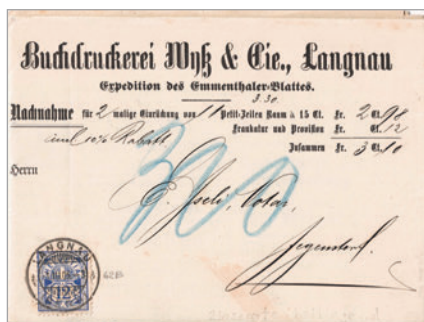 Buchdruckerei Wyß & Cie., Langnau
Expedition des Emmenthaler-Blattes.
3.30
Nachnahme für 2 malige Einrückung von 11 Petit-Zeilen Raum à 15 Ct. Fr. 2 Ct. 98
und 10% Rabatt Frankatur und Provision Fr. Ct. 12
Zusammen Fr. 3 Ct. 10
Herrn
300
Notar,
Jegenstorf.
LANGNAU
12